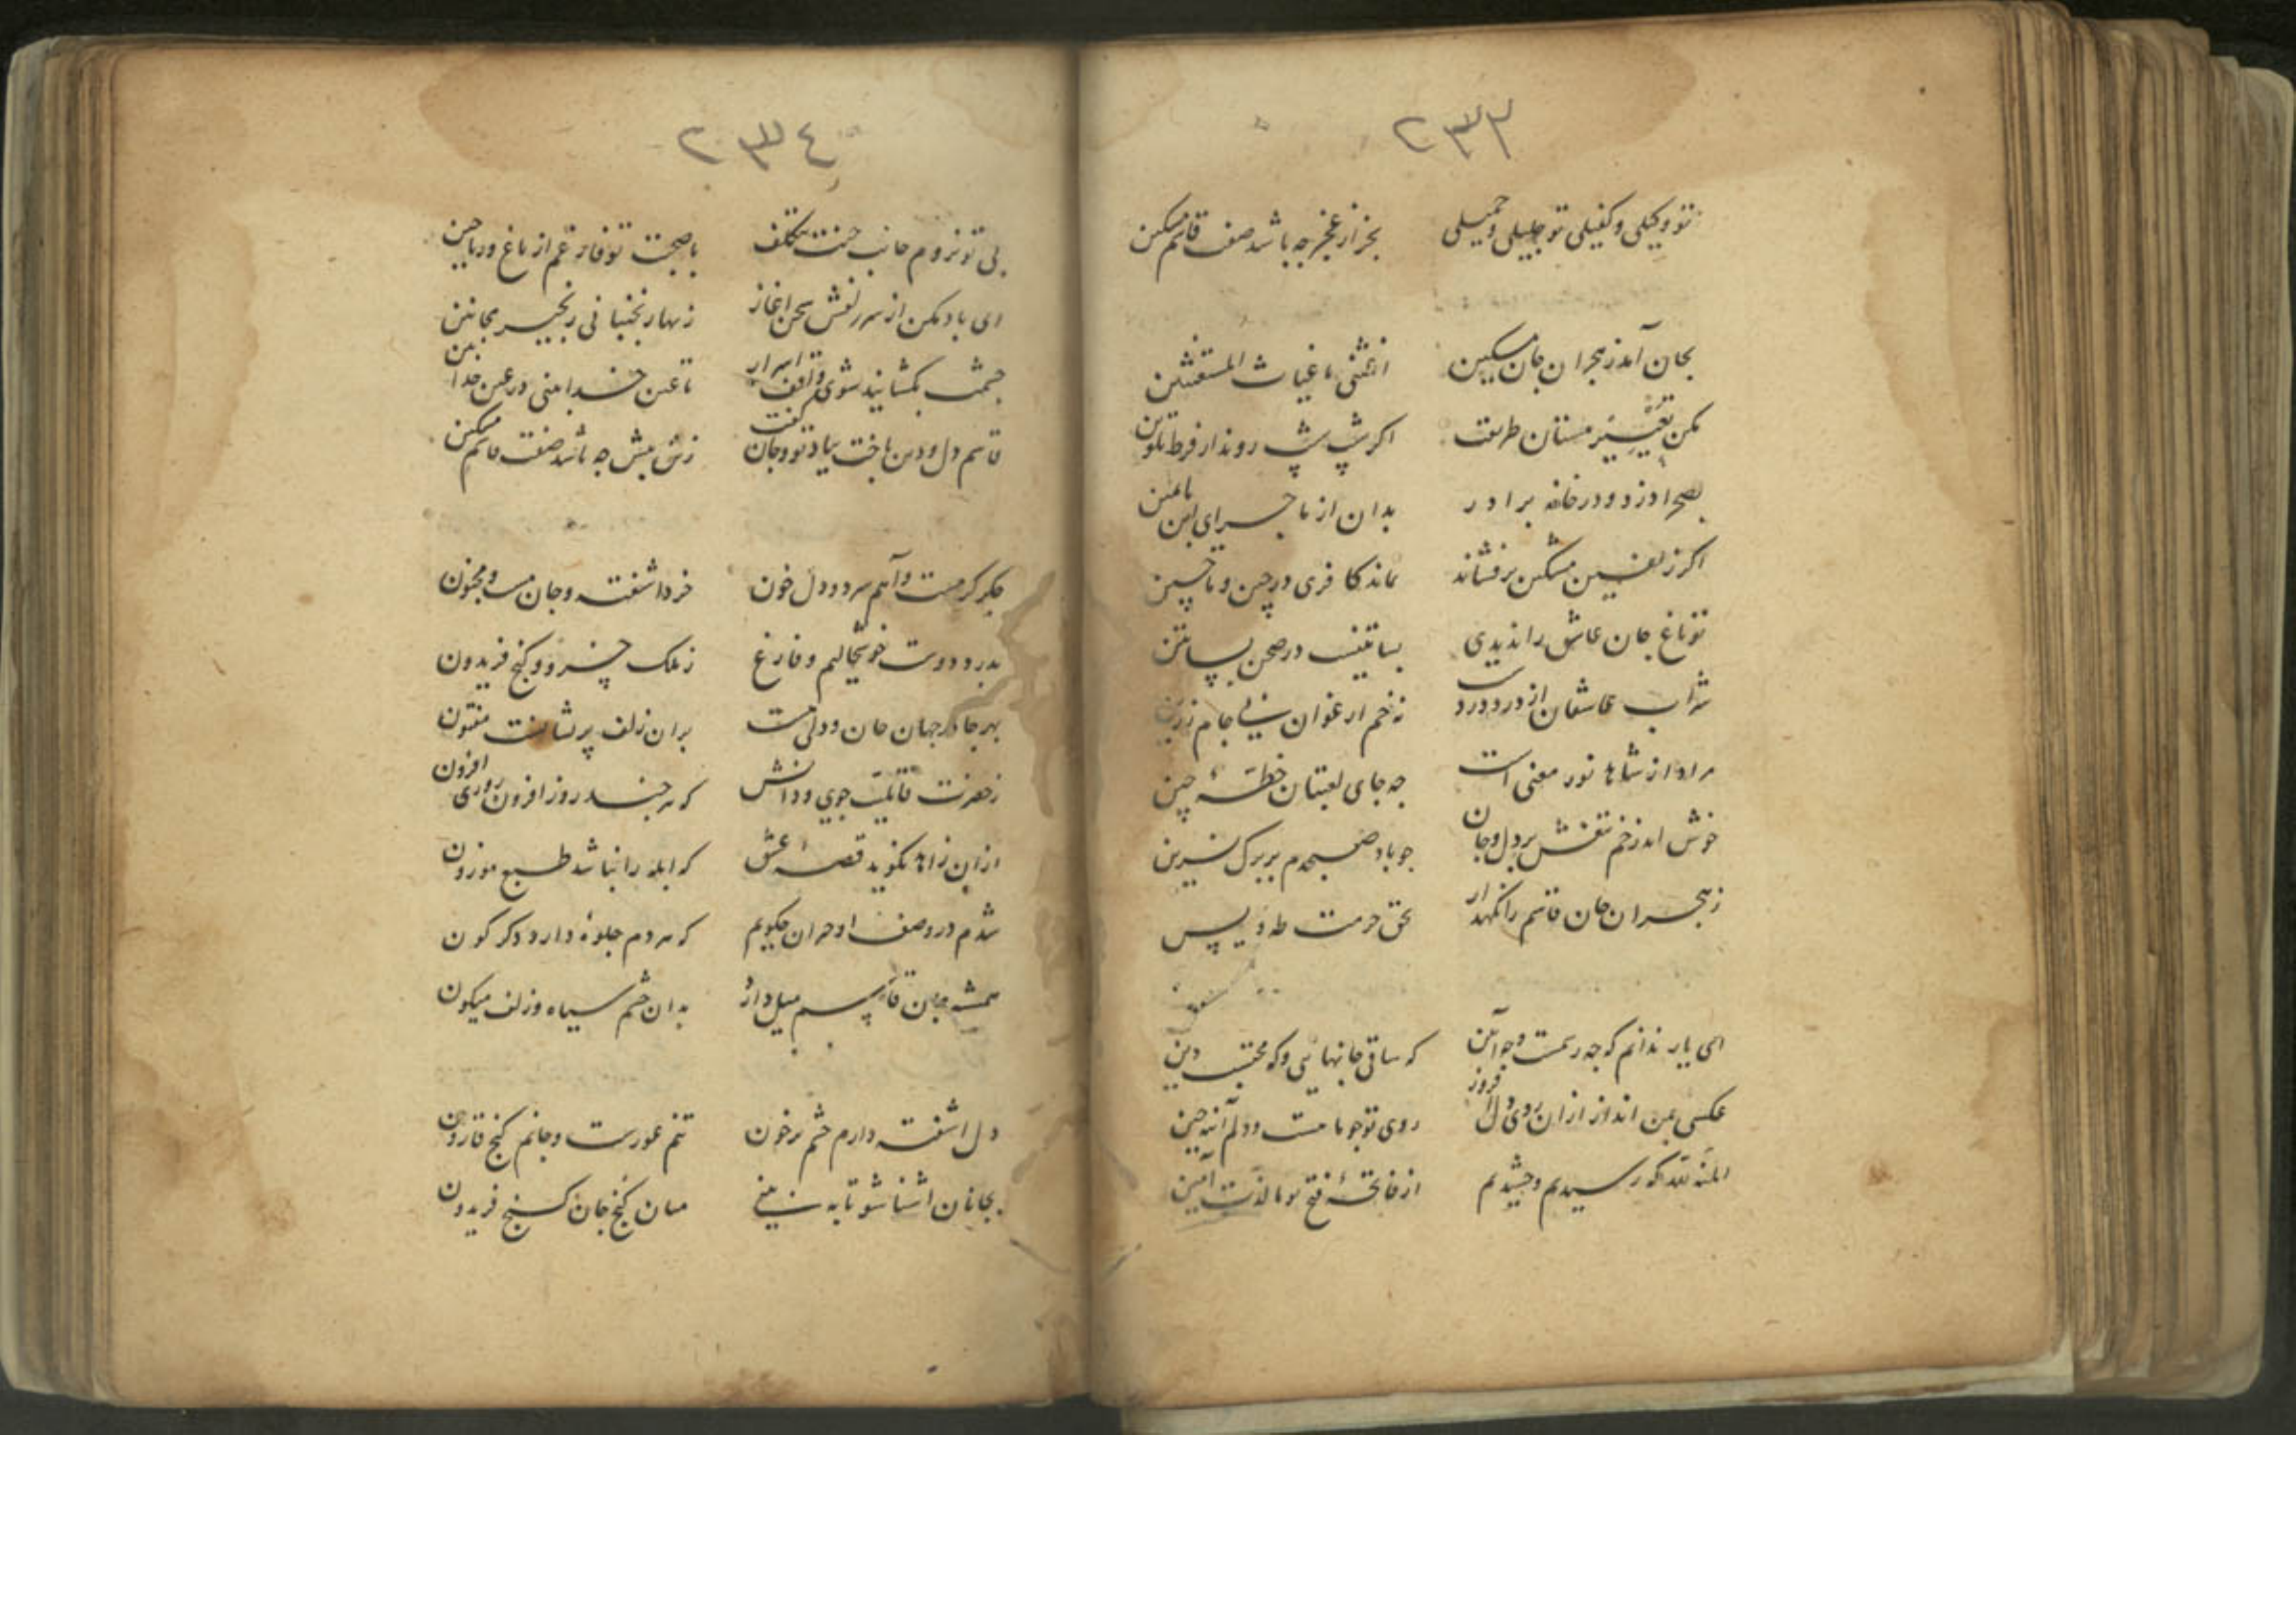 ٢٣٣
تو وکیلی و کفیلی تو جلیلی و جمیلی بجز از عجز چه باشد صفت قاسم مسکین
بجان آمد ز هجران جان مسکین اغثنی یا غیاث المستغثین
مکن تغییر مستان طریقت اکر شب شب روند از فرط تلوین
بصحرا دزد و در خانه برادر بدان از ماجرای ابن یامین
اکر زلفین مشکین برفشاند نماند کافری در چین و ماچین
تو باغ جان عاشق را ندیدی بساتینست در صحن بساتین
شراب عاشقان از درد دردست نه خم ارغوان نی جام زرین
مراد از شاها نور معنی است چه جای لعبتان خطهٔ چین
خوش امد زخم تیغش بر دل و جان چو باد صبحدم بر برک نسرین
ز هجران جان قاسم را نکهدار بحق حرمت طه و یس
ای یار ندانم که چه رسمست و چه آیین که ساقی جانهایی و که محتسب دین
عکسی بمن انداز ازان روی دل افروز روی تو چو ماهست و دلم آینه چین
المنة لله که رسیدیم و چشیدیم از فاتحهٔ فتح تو ما لذت آمین
٢٣٤
بی تو نروم جانب جنت بتکلف با صحبت تو فارغم از باغ و ریاحین
ای باد مکن از سر زلفش سخن اغاز زنهار نجنبانی زنجیر مجانین
چشمت بکشایند شوی واقف اسرار تا عین خدا بینی در عین خدا بین
قاسم دل و دین باخت بیاد تو و جان کفت زین بیش چه باشد صفت قاسم مسکین
جکر کرمست و آهم سرد و دل خون خرد اشفته و جان مست و مجنون
بدرد دوست خوشحالیم و فارغ ز ملک خسرو و کنج فریدون
بهر جا در جهان جان و دلی هست بران زلف پریشانست مفتون
ز حضرت قابلیت جوی و دانش که هر چند روز افزون روزی افزون
ازان زاهد نکوید قصهٔ عشق که ابله را نباشد طبع موزون
شدم در وصف او حیران چکویم که هر دم جلوهٔ دارد دکر کون
همیشه جان قاسم میل دارد بدان چشم سیاه و زلف میکون
دل اشفته دارم چشم پرخون تنم عورست و جانم کنج قارون
بجانان اشنا شو تا به بینی میان کنج جان کنج فریدون